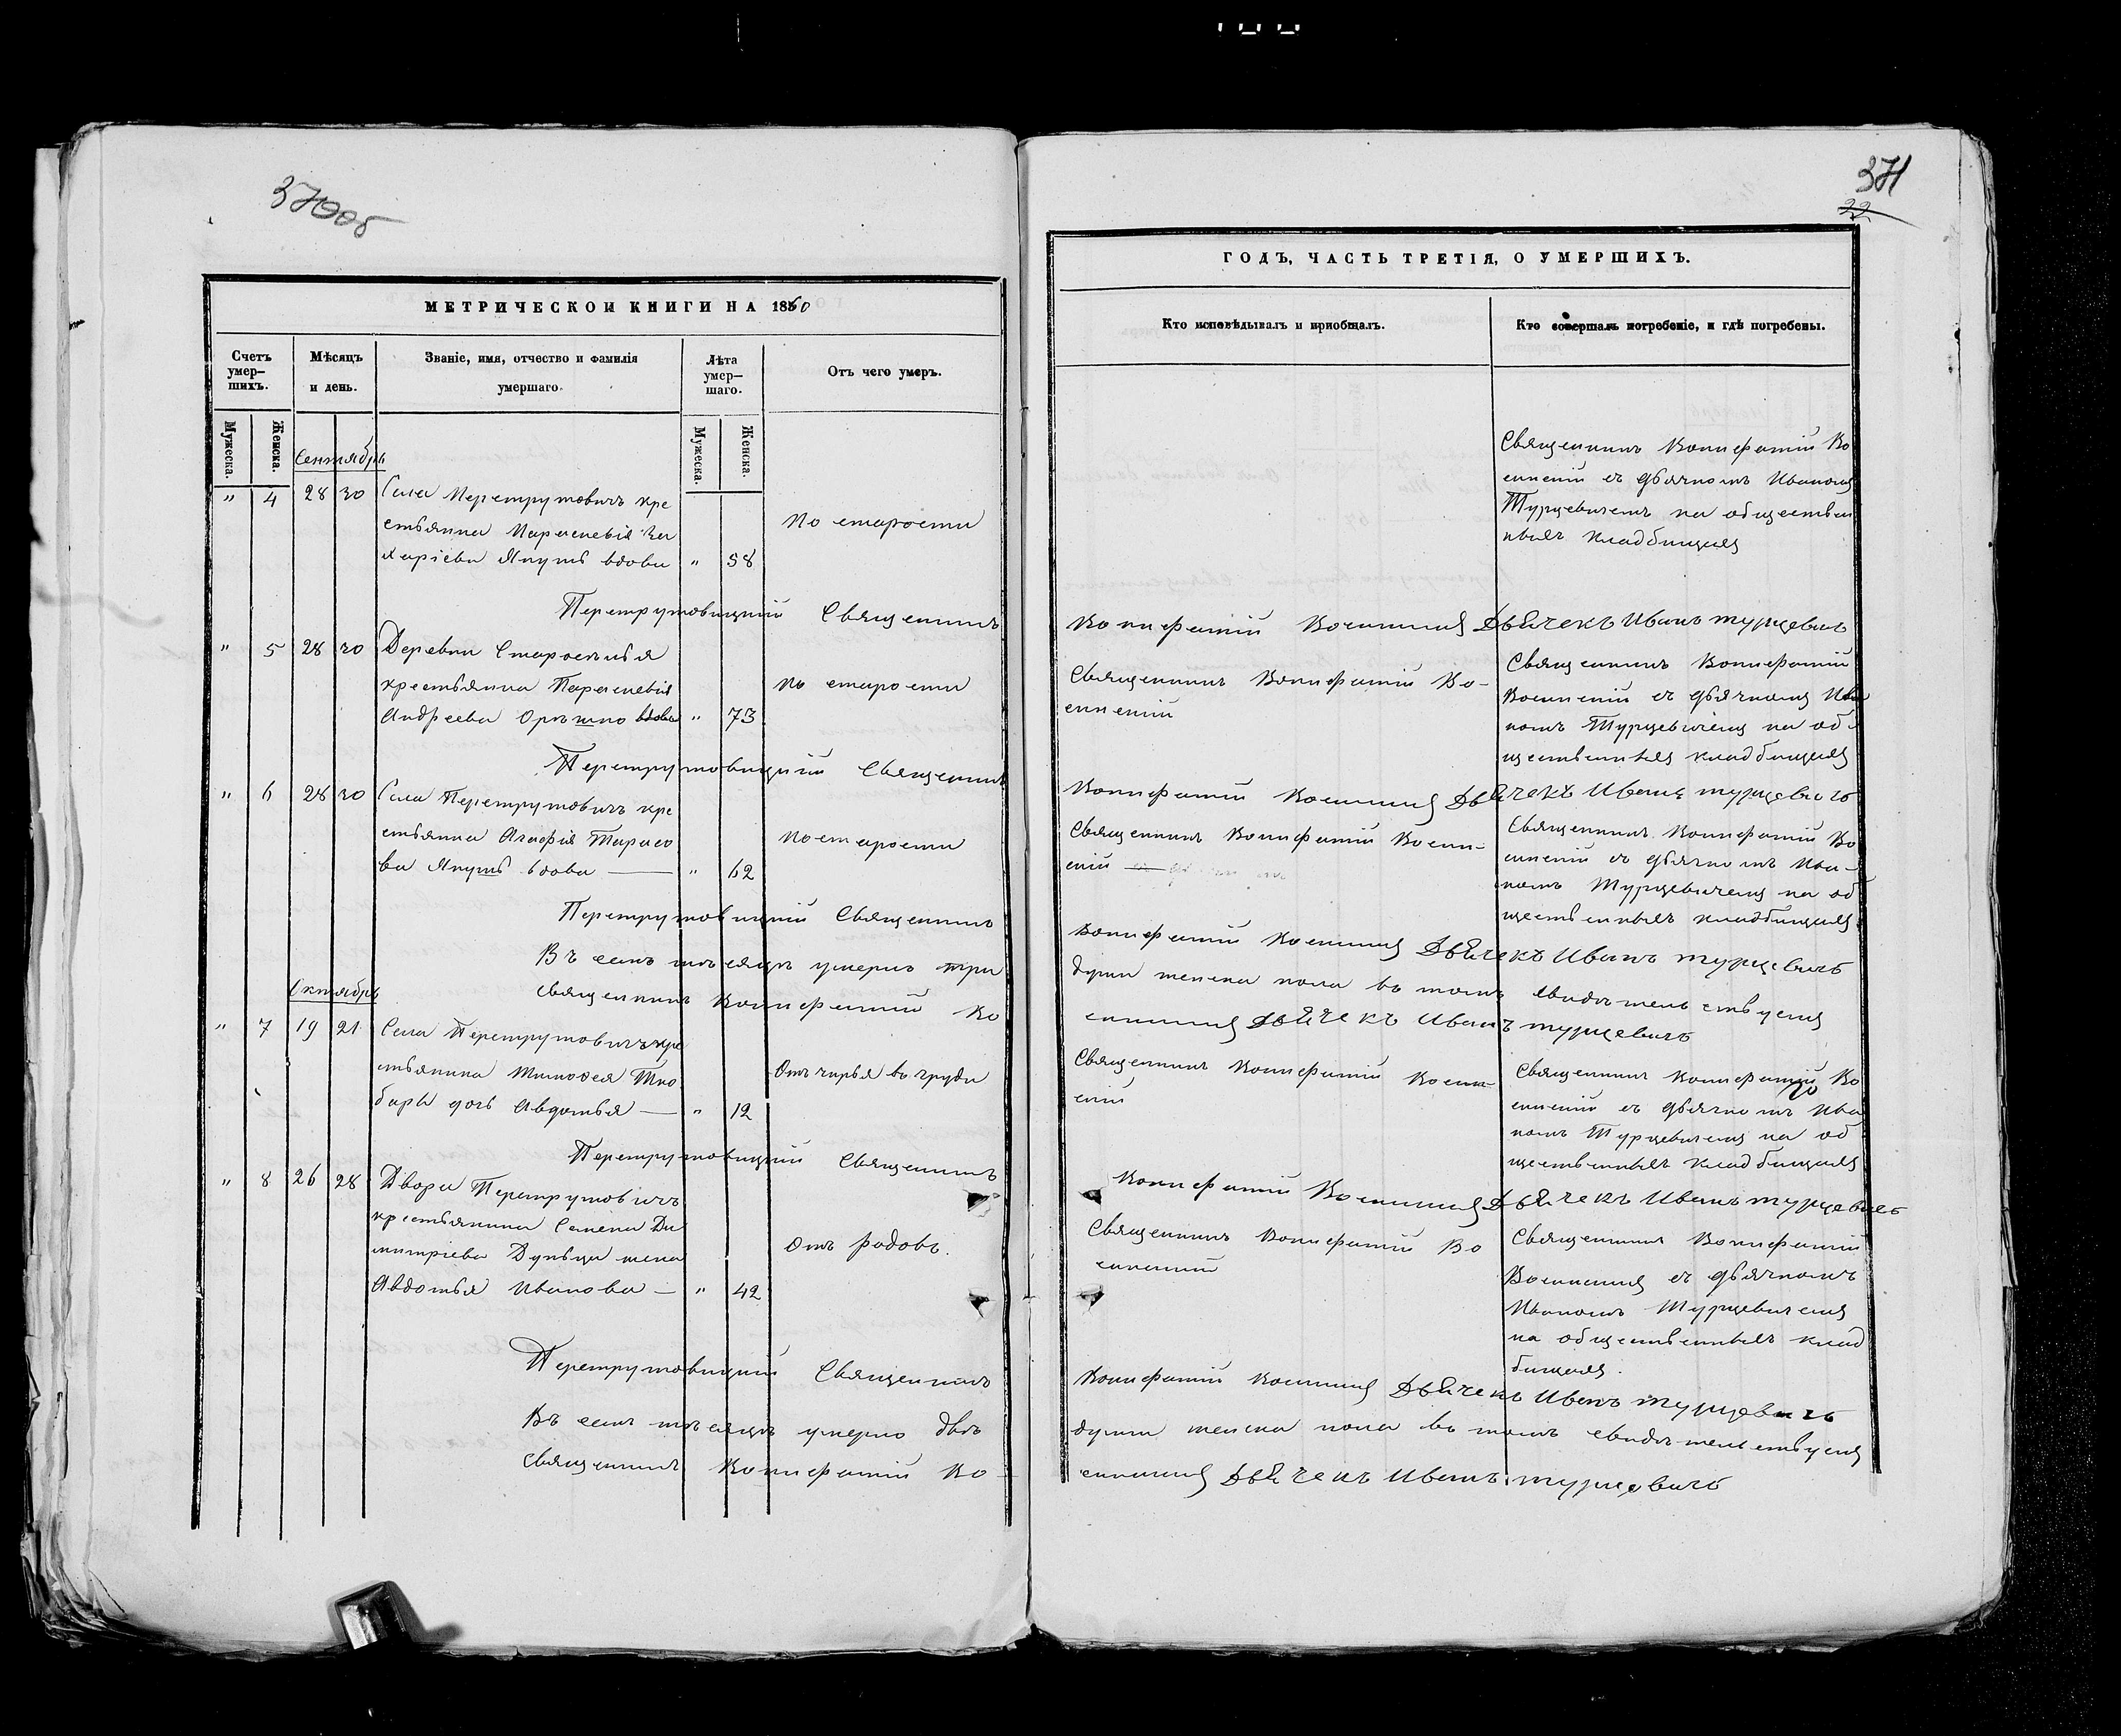 370об
МЕТРИЧЕСКОЙ КНИГИ НА 1860
Счетъ умер-
шихъ.
Мѣсяцъ
и день.
Званіе, имя, отчество и фамилія
умершаго.
Лѣта
умер-
шаго.
Отъ чего умеръ.
Мужеска.
Женска.
Мужеска.
Женска.
Сентябрь
" 4 28 30 Села Перетрутовичъ кре
стьянка Параскевія За
харіева Януль вдова " 58
По старости
Перетрутовицкій Священникъ
" 5 28 30 Деревни Староселья
крестьянка Параскевія
Андреева вдова " 73
По старости
Перетрутовицкій Священникъ
" 6 28 30 Села Перетрутовичъ кре
стьянка Агафія Тарасо
ва вдова — " 62
По старости
Перетрутовицкій Священникъ
Въ семъ мѣсяцѣ умерло три
Священникъ Вонифатій Во
Октябрь
" 7 19 21 Села Перетрутовичъ кре
стьянина Тимофея
дочь Авдотья — " 12
Отъ чирья въ груди
Перетрутовицкій Священникъ
" 8 26 28 Двора Перетрутовичъ
крестьянина Семена Ди
митріева жена
Авдотья Иванова — " 42
Отъ родовъ.
Перетрутовицкій Священникъ
Въ семъ мѣсяцѣ умерло двѣ
Священникъ Вонифатій Во-
371
22
ГОДЪ, ЧАСТЬ ТРЕТІЯ, О УМЕРШИХЪ.
Кто исповѣдывалъ и пріобщалъ.
Кто совершалъ погребеніе, и гдѣ погребены.
Священникъ Вонифатій Во
синскій съ дьячкомъ Иваномъ
Турцевичемъ на обществен
ныхъ кладбищахъ
Вонифатій Дьячекъ Иванъ Турцевичъ
Священникъ Вонифатій Во-
синскій
Священникъ Вонифатій
Восинскій съ дьячкомъ Ива
номъ Турцевичемъ на об-
щественныхъ кладбищахъ
Вонифатій Дьячекъ Иванъ Турцевичъ
Священникъ Вонифатій Восин-
скій —
Священникъ Вонифатій Во
синскій съ дьячкомъ Ива-
номъ Турцевичемъ на об
щественныхъ кладбищахъ
Вонифатій Дьячекъ Иванъ Турцевичъ
души женска пола въ томъ свидѣтельствуемъ
Дьячекъ Иванъ Турцевичъ
Священникъ Вонифатій Восин-
скій
Священникъ Вонифатій Во
синскій съ дьячкомъ Ива
номъ Турцевичемъ на об
щественныхъ кладбищахъ
Вонифатій Дьячекъ Иванъ Турцевичъ
Священникъ Вонифатій Во
синскій
Священникъ Вонифатій
съ дьячкомъ
Иваномъ Турцевичемъ
на общественныхъ клад
бищахъ.
Вонифатій Дьячекъ Иванъ Турцевичъ
души женска пола въ томъ свидѣтельствуемъ
Дьячекъ Иванъ Турцевичъ